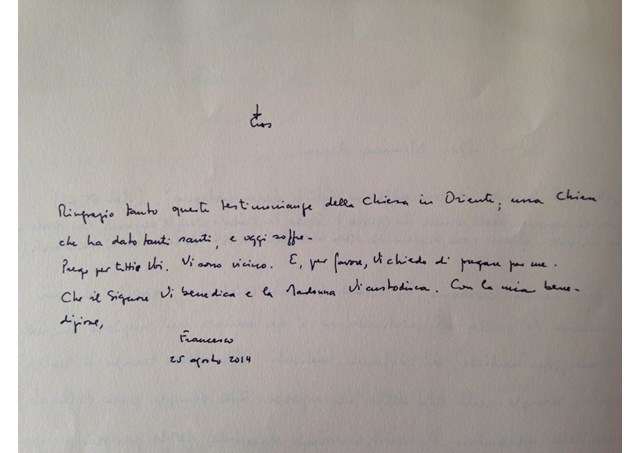 Ringrazio tanto queste testimonianze della Chiesa in Oriente; una Chiesa
che ha dato tanti santi, e oggi soffre.
Prego per tutti Voi. Vi sono vicino. E, per favore, Vi chiedo di pregare per me.
Che il Signore Vi benedica e la Madonna Vi custodisca. Con la mia bene-
dizione,
Francesco
25 agosto 2014